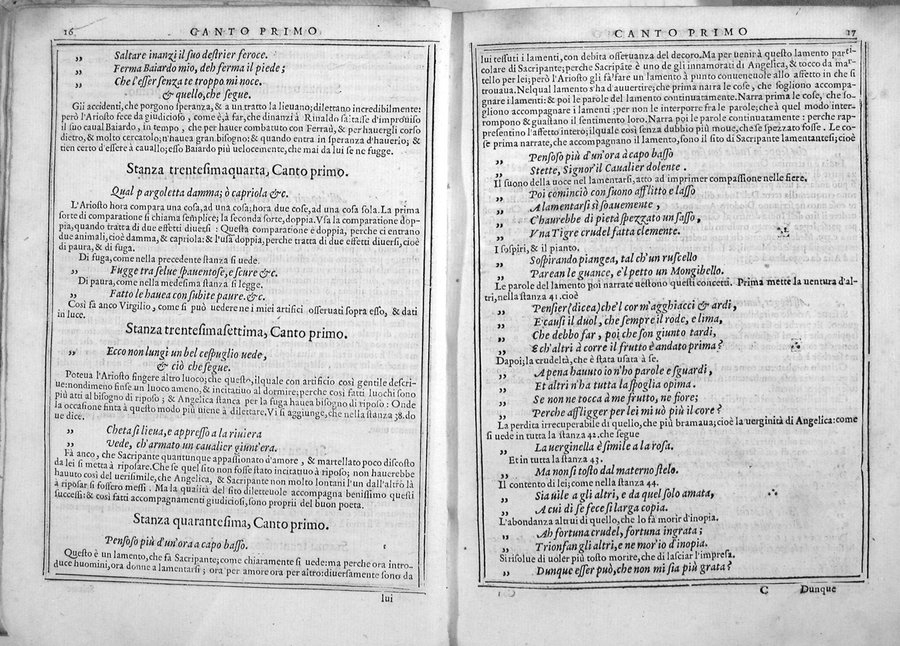 16 CANTO PRIMO
„ Saltare inanzi il suo destrier feroce.
„ Ferma Baiardo mio, deh ferma il piede;
„ Che l'esser senza te troppo mi noce.
& quello, che segue.
Gli accidenti, che porgono speranza, & a un tratto la lieuano; dilettano incredibilmente:
però l'Ariosto fece da giudicioso, come è, à far, che dinanzi à Rinaldo sá'tasse d'improuiso
il suo caual Baiardo, in tempo, che per hauer combatuto con Ferraù, & per hauergli corso
dietro, & molto cercatolo; n'hauea gran bisogno: & quando entra in speranza d'hauerlo; &
tien certo d'essere à cauallo; esso Baiardo più uelocemente, che mai da lui se ne fugge.
Stanza trentesimaquarta, Canto primo.
Qual pargoletta damma; ò capriola &c.
L'Ariosto hora compara una cosa, ad una cosa; hora due cose, ad una cosa sola. La prima
sorte di comparatione si chiama semplice; la seconda sorte, doppia. V'sa la comparatione dop-
pia, quando tratta di due effetti diuersi: Questa comparatione è doppia, perche ci entrano
due animali, cioè damma, & capriola: & l'usa doppia, perche tratta di due effetti diuersi, cioè
di paura, & di fuga.
Di fuga, come nella precedente stanza si uede.
„ Fugge tra selue spauentose, e scure &c.
Di paura, come nella medesima stanza si legge.
„ Fatto le hauea con subite paure. &c.
Così fa anco Virgilio, come si può uedere ne i miei artifici osseruati sopra esso, & dati
in luce.
Stanza trentesimasettima, Canto primo.
„ Ecco non lungi un bel cespuglio uede,
& ciò che segue.
Poteua l'Ariosto fingere altro luoco; che questo, il quale con artificio così gentile descri-
ue: nondimeno finse un luoco ameno, & incitatiuo al dormire; perche così fatti luochi sono
più atti al bisogno di riposo; & Angelica stanca per la fuga hauea bisogno di riposo: Onde
la occasione finta à questo modo più uiene à dilettare. Vi si aggiunge, che nella stanza 38. do
ue dice.
„ Cheta si lieua, e appresso a la riuiera
„ Vede, ch'armato un caualier giunt'era.
Fà anco, che Sacripante quantunque appassionato d'amore, & martellato poco discosto
da lei si mettà à riposare. Che se quel sito non fosse stato incitatiuo à riposo; non hauerebbe
hauuto così del uerisimile, che Angelica, & Sacripante non molto lontani l'un dall'altro là
à riposar si fossero messi. Ma la qualità del sito diletteuole accompagna benissimo questi
successi: & così fatti accompagnamenti giudiciosi, sono proprii del buon poeta.
Stanza quarantesima, Canto primo.
„ Pensoso più d'un'ora a capo basso.
Questo è un lamento, che fà Sacripante; come chiaramente si uede: ma perche ora intro-
duce huomini, ora donne a lamentarsi; ora per amore ora per altro: diuersamente sono da
lui
CANTO PRIMO 17
lui tessuti i lamenti, con debita osseruanza del decoro. Ma per uenir à questo lamento parti
colare di Sacripante; perche Sacripãte è uno de gli innamorati di Angelica, & tocco da mar-
tello per lei; però l'Ariosto gli fà fare un lamento à punto conueneuole allo affetto in che si
trouaua. Nel qual lamento s'ha d'auuertire; che prima narra le cose, che sogliono accompa-
gnare i lamenti: & poi le parole del lamento continuatamente. Narra prima le cose, che so-
gliono accompagnare i lamenti; per non le interporre fra le parole; che à quel modo inter-
rompono & guastano il sentimento loro. Narra poi le parole continuatamente: perche rap-
presentino l'affetto intero; il quale così senza dubbio più moue, che se spezzato fosse. Le co-
se prima narrate, che accompagnano il lamento, sono il sito di Sacripante lamentantesi; cioè
„ Pensoso più d'un'ora à capo basso
„ Stette, Signor'il Caualier dolente.
Il suono della uoce nel lamentarsi, atto ad imprimer compassione nelle fiere.
„ Poi cominciò con suono afflitto e lasso
„ A lamentarsi sì soauemente,
„ C'haurebbe di pietà spezzato un sasso,
„ Vna Tigre crudel fatta clemente.
I sospiri, & il pianto.
„ Sospirando piangea, tal ch'un ruscello
„ Parean le guance, e'l petto un Mongibello.
Le parole del lamento poi narrate uestono questi concetti. Prima mette la uentura d'al-
tri, nella stanza 41. cioè
„ Pensier (dicea) che'l cor m'agghiacci & ardi,
„ E causi il duol, che sempre il rode, e lima,
„ Che debbo far, poi che son giunto tardi,
„ E ch'altri à corre il frutto è andato prima?
Dapoi; la crudeltà, che è stata usata à se.
„ A pena hauuto io n'ho parole e sguardi,
„ Et altri n'ha tutta la spoglia opima.
„ Se non ne tocca à me frutto, ne fiore;
„ Perche affligger per lei mi uò più il core?
La perdita irrecuperabile di quello, che più bramaua; cioè la uerginità di Angelica: come
si uede in tutta la stanza 42. che segue
„ La uerginella è simile a la rosa.
Et in tutta la stanza 43.
„ Ma non sì tosto dal materno stelo.
Il contento di lei; come nella stanza 44.
„ Sia uile a gli altri, e da quel solo amata,
„ A cui di se fece sì larga copia.
L'abondanza altrui di quello, che lo fà morir d'inopia.
„ Ah fortuna crudel, fortuna ingrata;
„ Trionfan gli altri, e ne mor'io d'inopia.
Si risolue di uoler più tosto morire, che di lasciar l'impresa.
„ Dunque esser può, che non mi sia più grata?
C Dunque